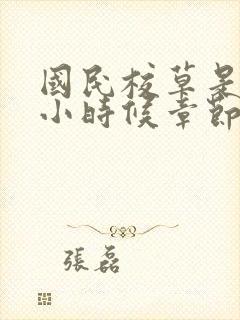 國民校草是
小時候章節
張磊